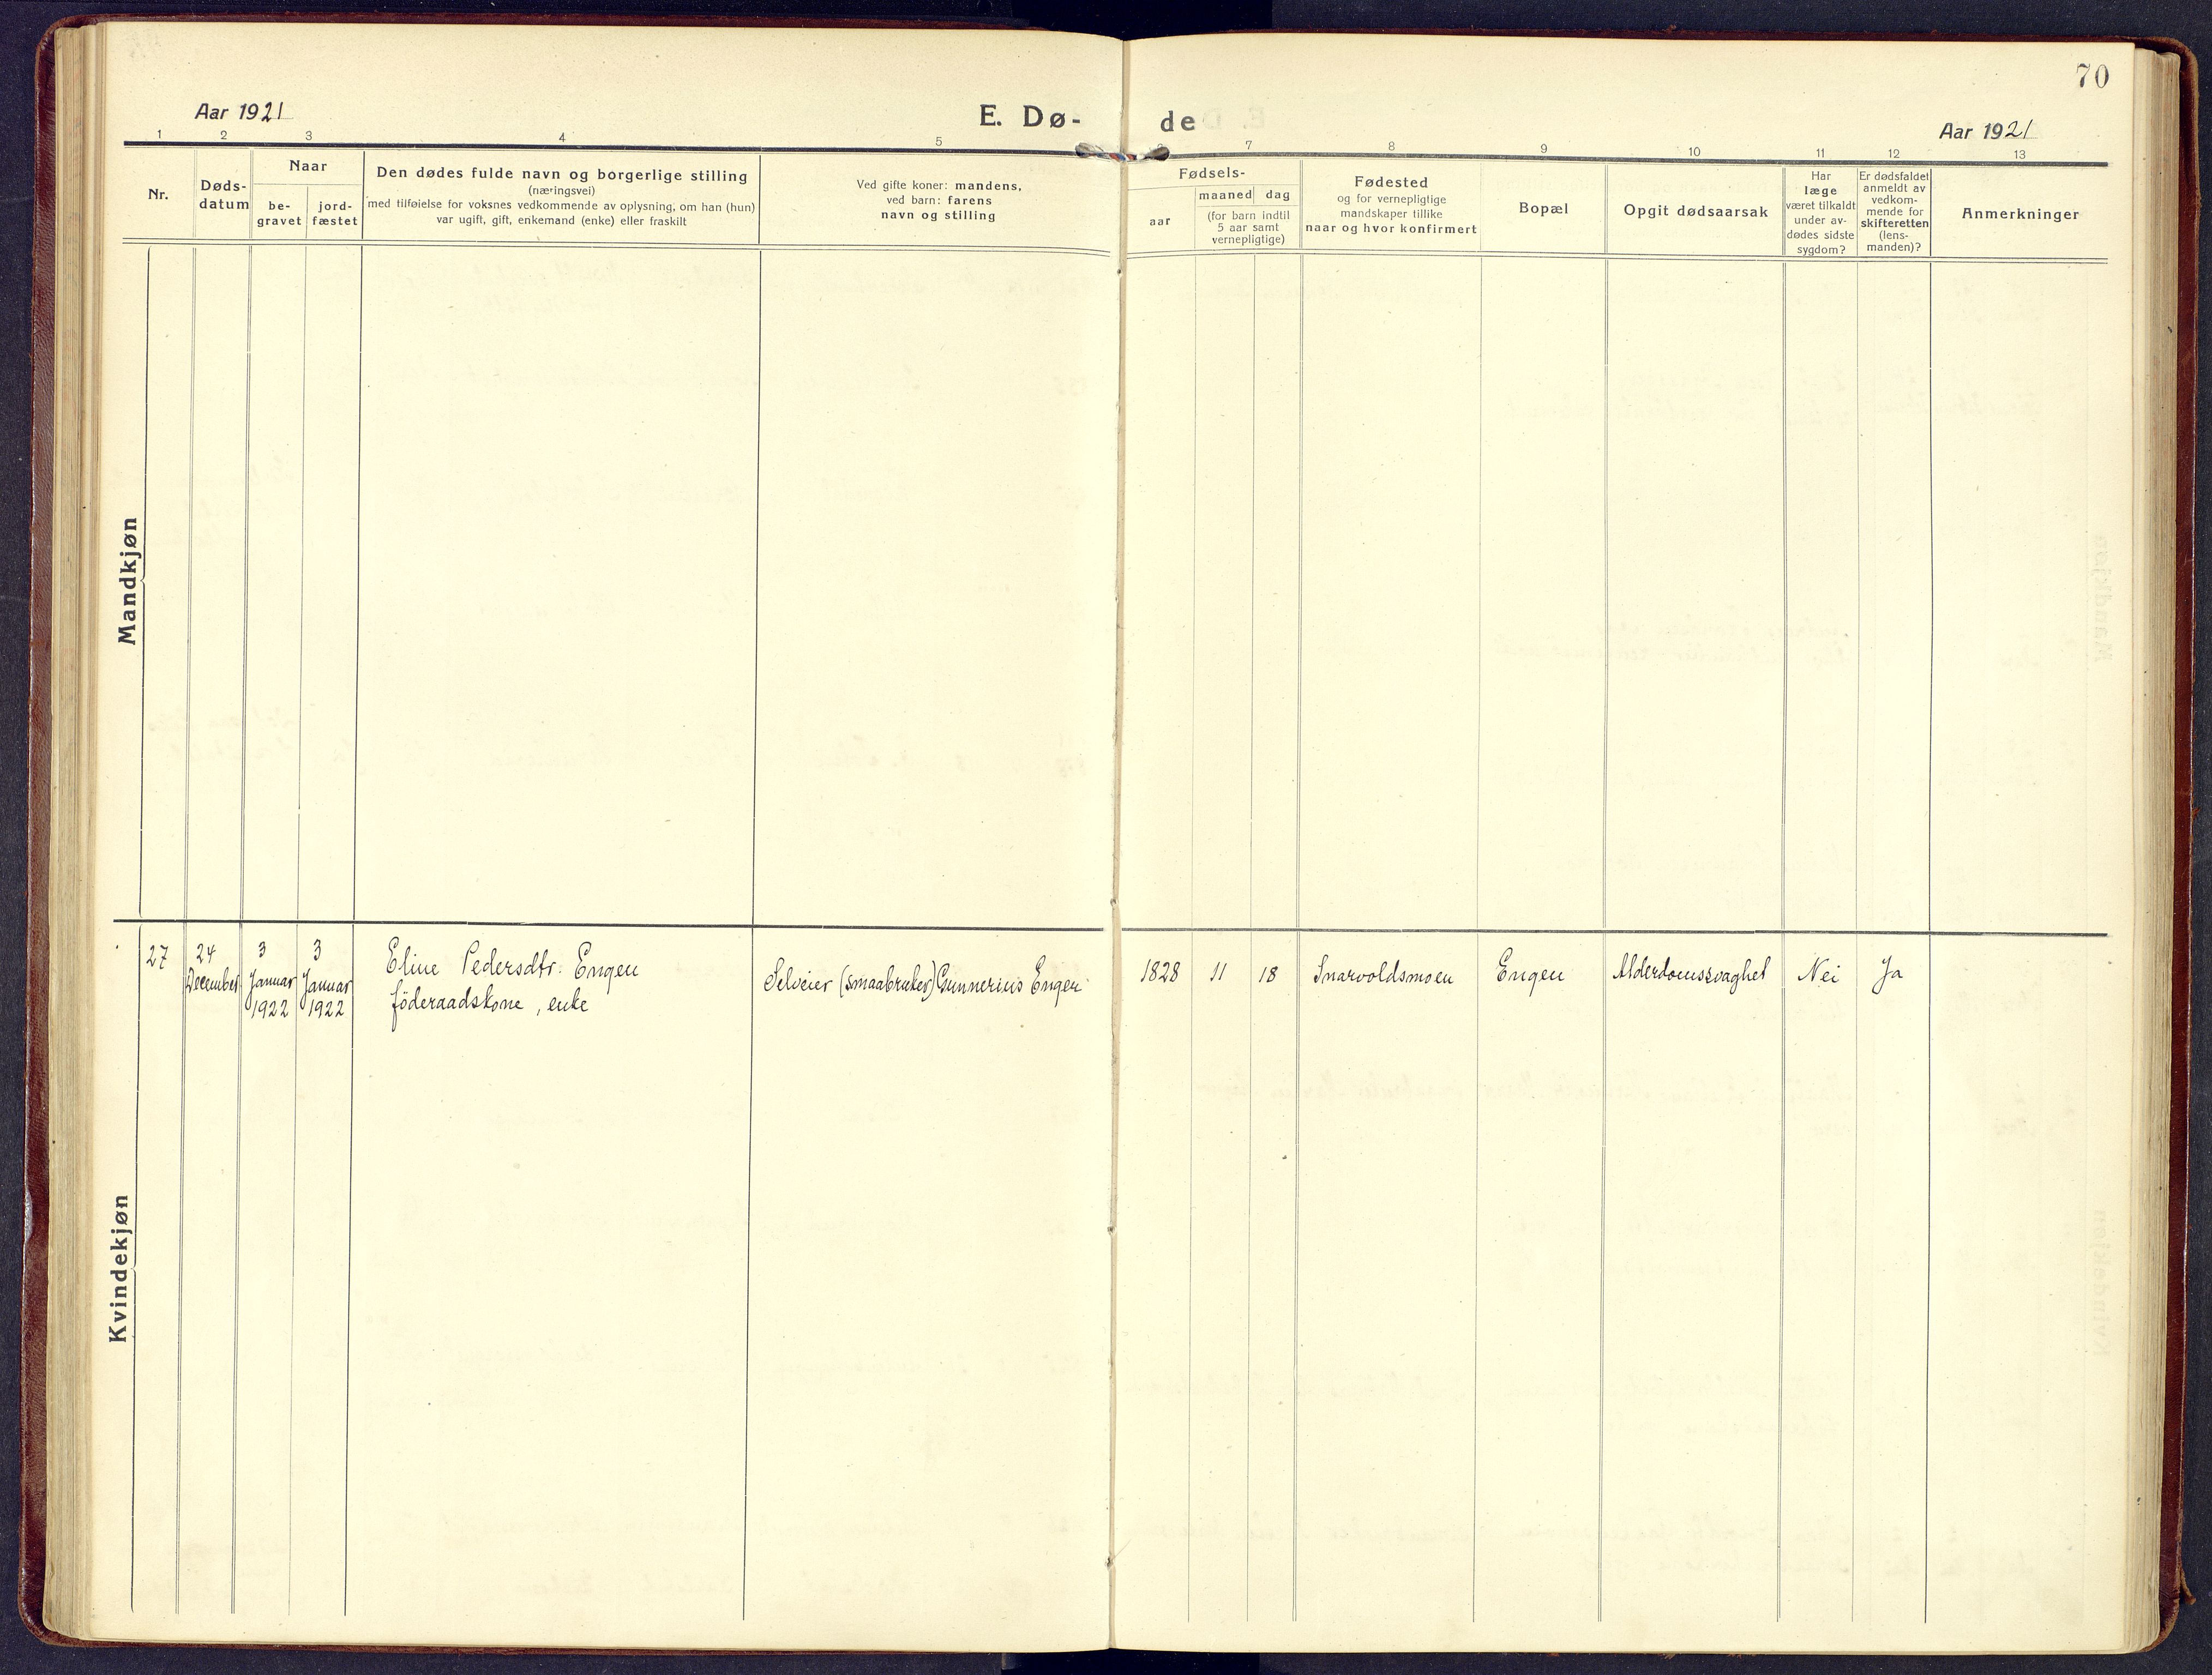 70
Aar 1921
E. Dø-
de
Aar 1921
1 2 3 4 5
7 8 9 10 11 12 13
Nr.
Døds-
datum
Naar
be-
gravet
jord-
fæstet
Den dødes fulde navn og borgerlige stilling
(næringsvei)
med tilføielse for voksnes vedkommende av oplysning, om han (hun)
var ugift, gift, enkemand (enke) eller fraskilt
Ved gifte koner: mandens,
ved barn: farens
navn og stilling
Fødsels-
aar
maaned
dag
(for barn indtil
5 aar samt
vernepligtige)
Fødested
og for vernepligtige
mandskaper tillike
naar og hvor konfirmert
Bopæl
Opgit dødsaarsak
Har
læge
været tilkaldt
under av-
dødes sidste
sygdom?
Er dødsfaldet
anmeldt av
vedkom-
mende for
skifteretten
(lens-
manden)?
Anmerkninger
Mandkjøn
Kvindekjøn
27
24
December
3
Januar
1922
3
Januar
1922
Eline Pedersdtr. Engen
föderaadskone, enke
Selveier (smaabruker) Gunnerius Engen
1828
11
18
Snarvoldsmoen
Engen
Alderdomssvaghet
Nei
Ja